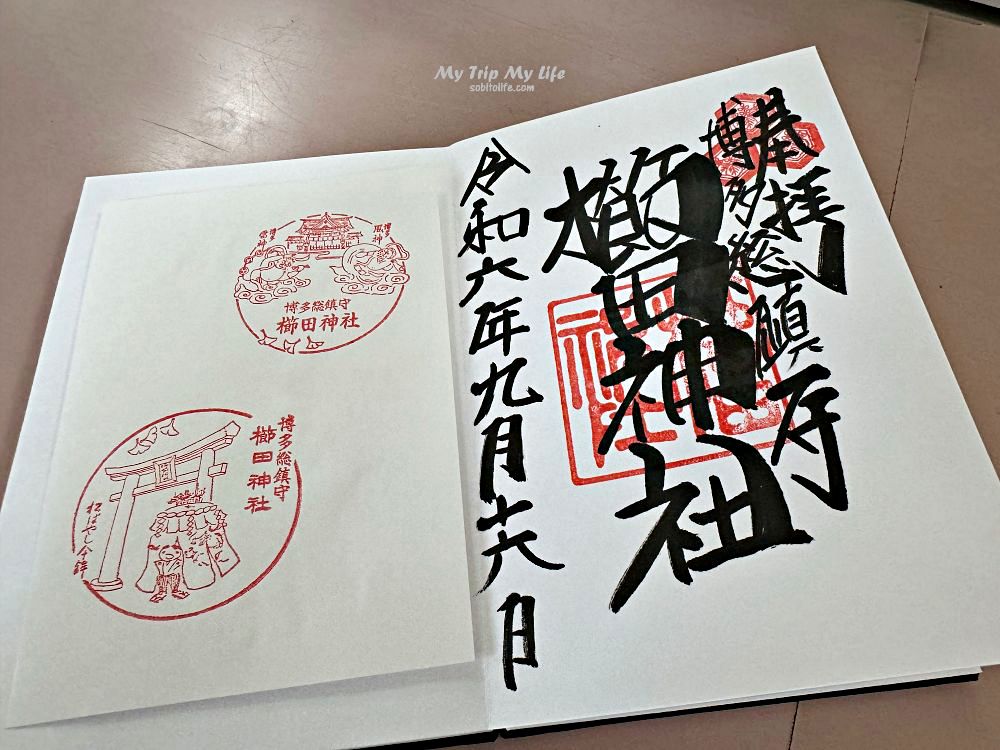 My Trip My Life
sobitolife.com
奉拝
博多總鎮守
櫛田神社
令和六年九月十六日
博多総鎮守
櫛田神社
風神
雷神
博多総鎮守
櫛田神社
松ばやし